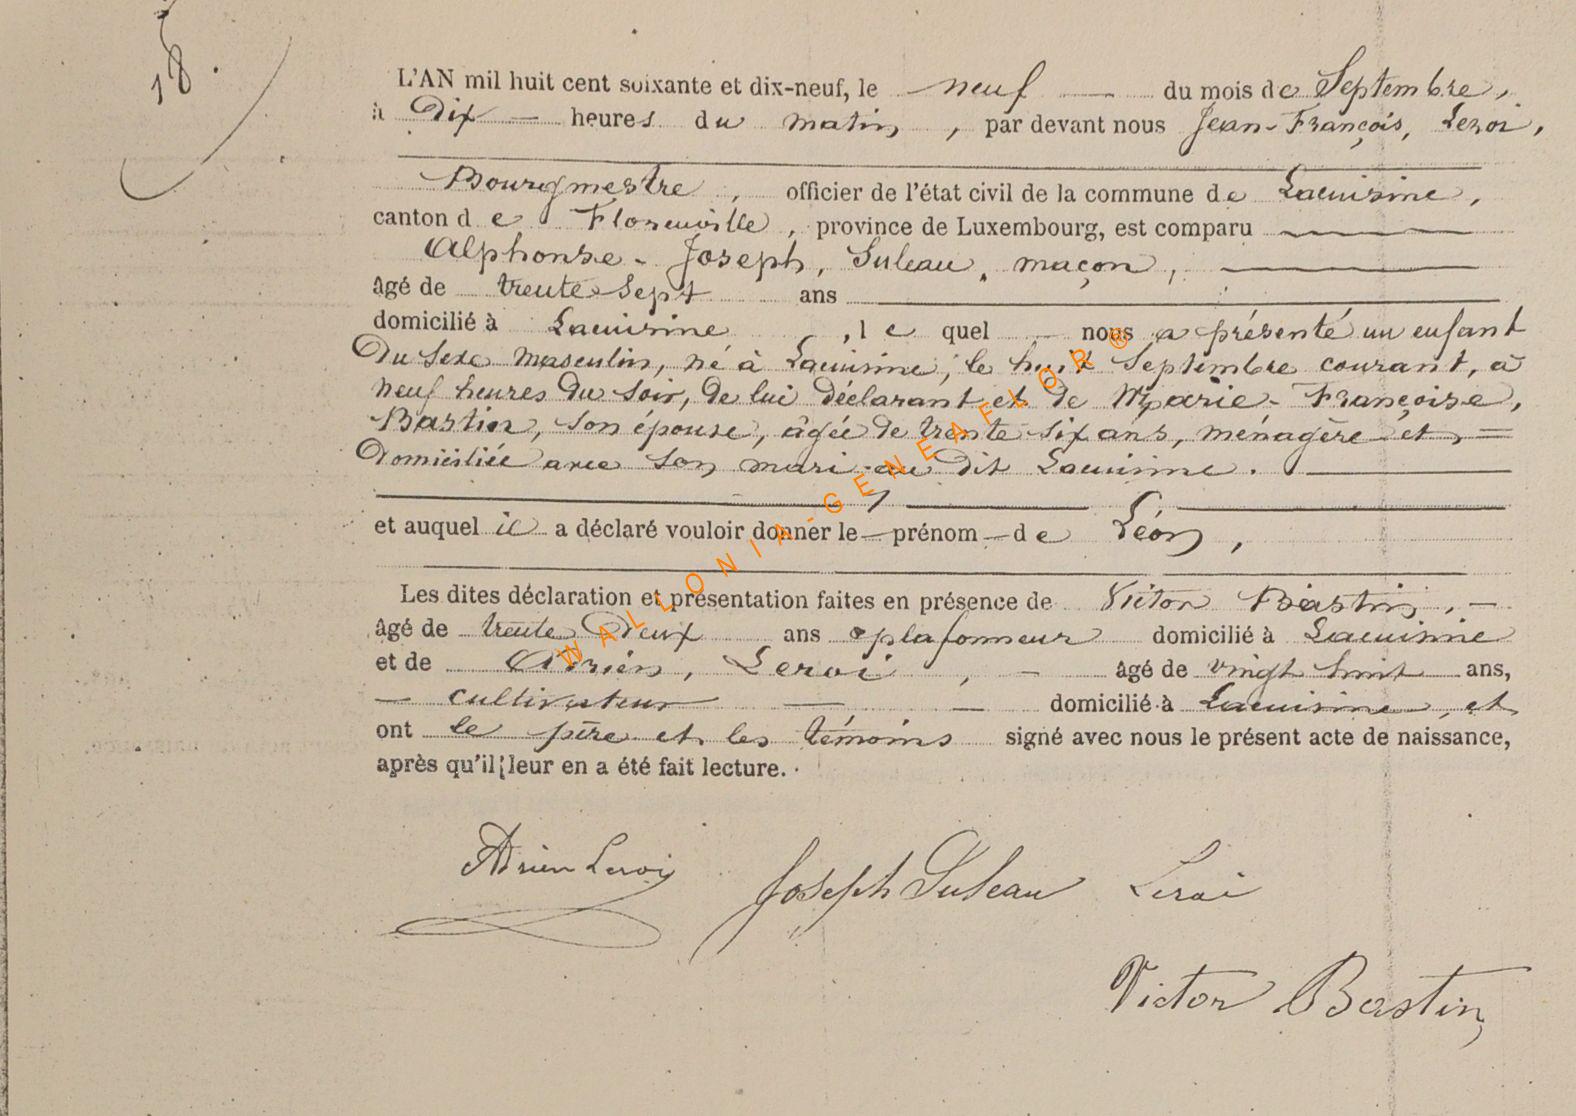 18.
L'AN mil huit cent soixante et dix-neuf, le neuf du mois de Septembre,
à Dix heures du matin, par devant nous Jean-François, Leroi,
Bourgmestre, officier de l'état civil de la commune de Lacuisine,
canton de Florenville, province de Luxembourg, est comparu
Alphonse-Joseph, Suleau, maçon,
âgé de trente Sept ans
domicilié à Lacuisine, lequel nous a présenté un enfant
Du Sexe masculin, né à Lacuisine, le huit Septembre courant, à
neuf heures Du Soir, De lui Déclarant et De Marie-Françoise,
Bastin, Son épouse, âgée De trente Six ans, ménagère et
Domiciliée avec Son mari au Dit Lacuisine.
et auquel il a déclaré vouloir donner le prénom de Léon,
Les dites déclaration et présentation faites en présence de Victor Bastin,
âgé de trente Deux ans plafonneur domicilié à Lacuisine
et de Adrien, Leroi, âgé de vingt huit ans,
cultivateur domicilié à Lacuisine, et
ont le père et les témoins signé avec nous le présent acte de naissance,
après qu'il leur en a été fait lecture.
WALLONIA-GENEAFLOR®
Adrien Leroi Joseph Suleau Leroi
Victor Bastin